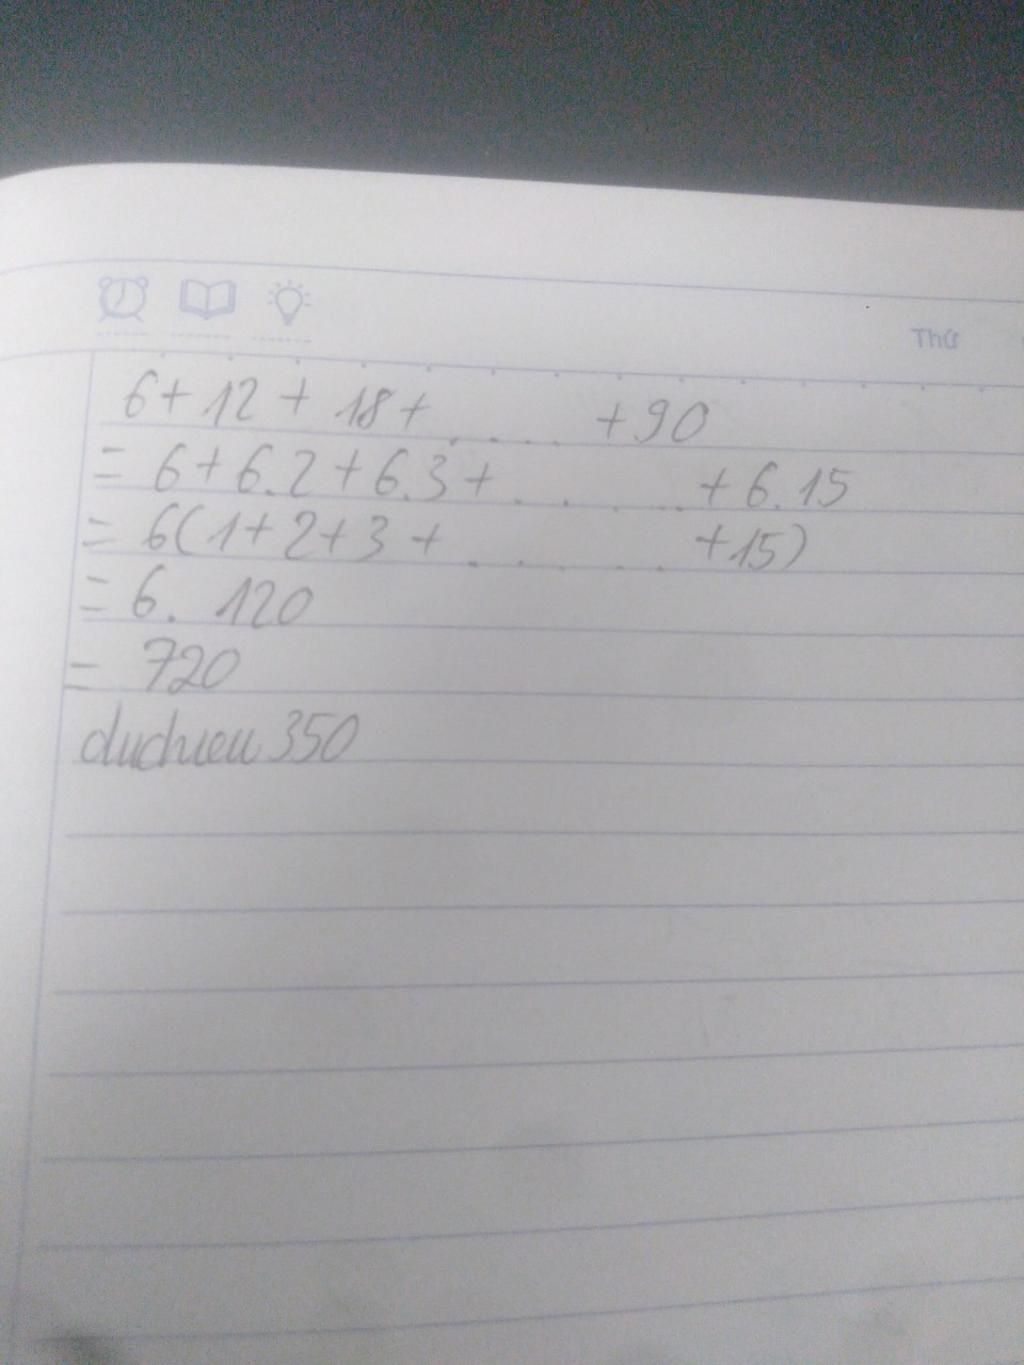 Thứ
6 + 12 + 18 + ..... + 90
= 6 + 6.2 + 6.3 + ...... + 6.15
= 6(1 + 2 + 3 + ...... + 15)
= 6. 120
= 720
duchieu350